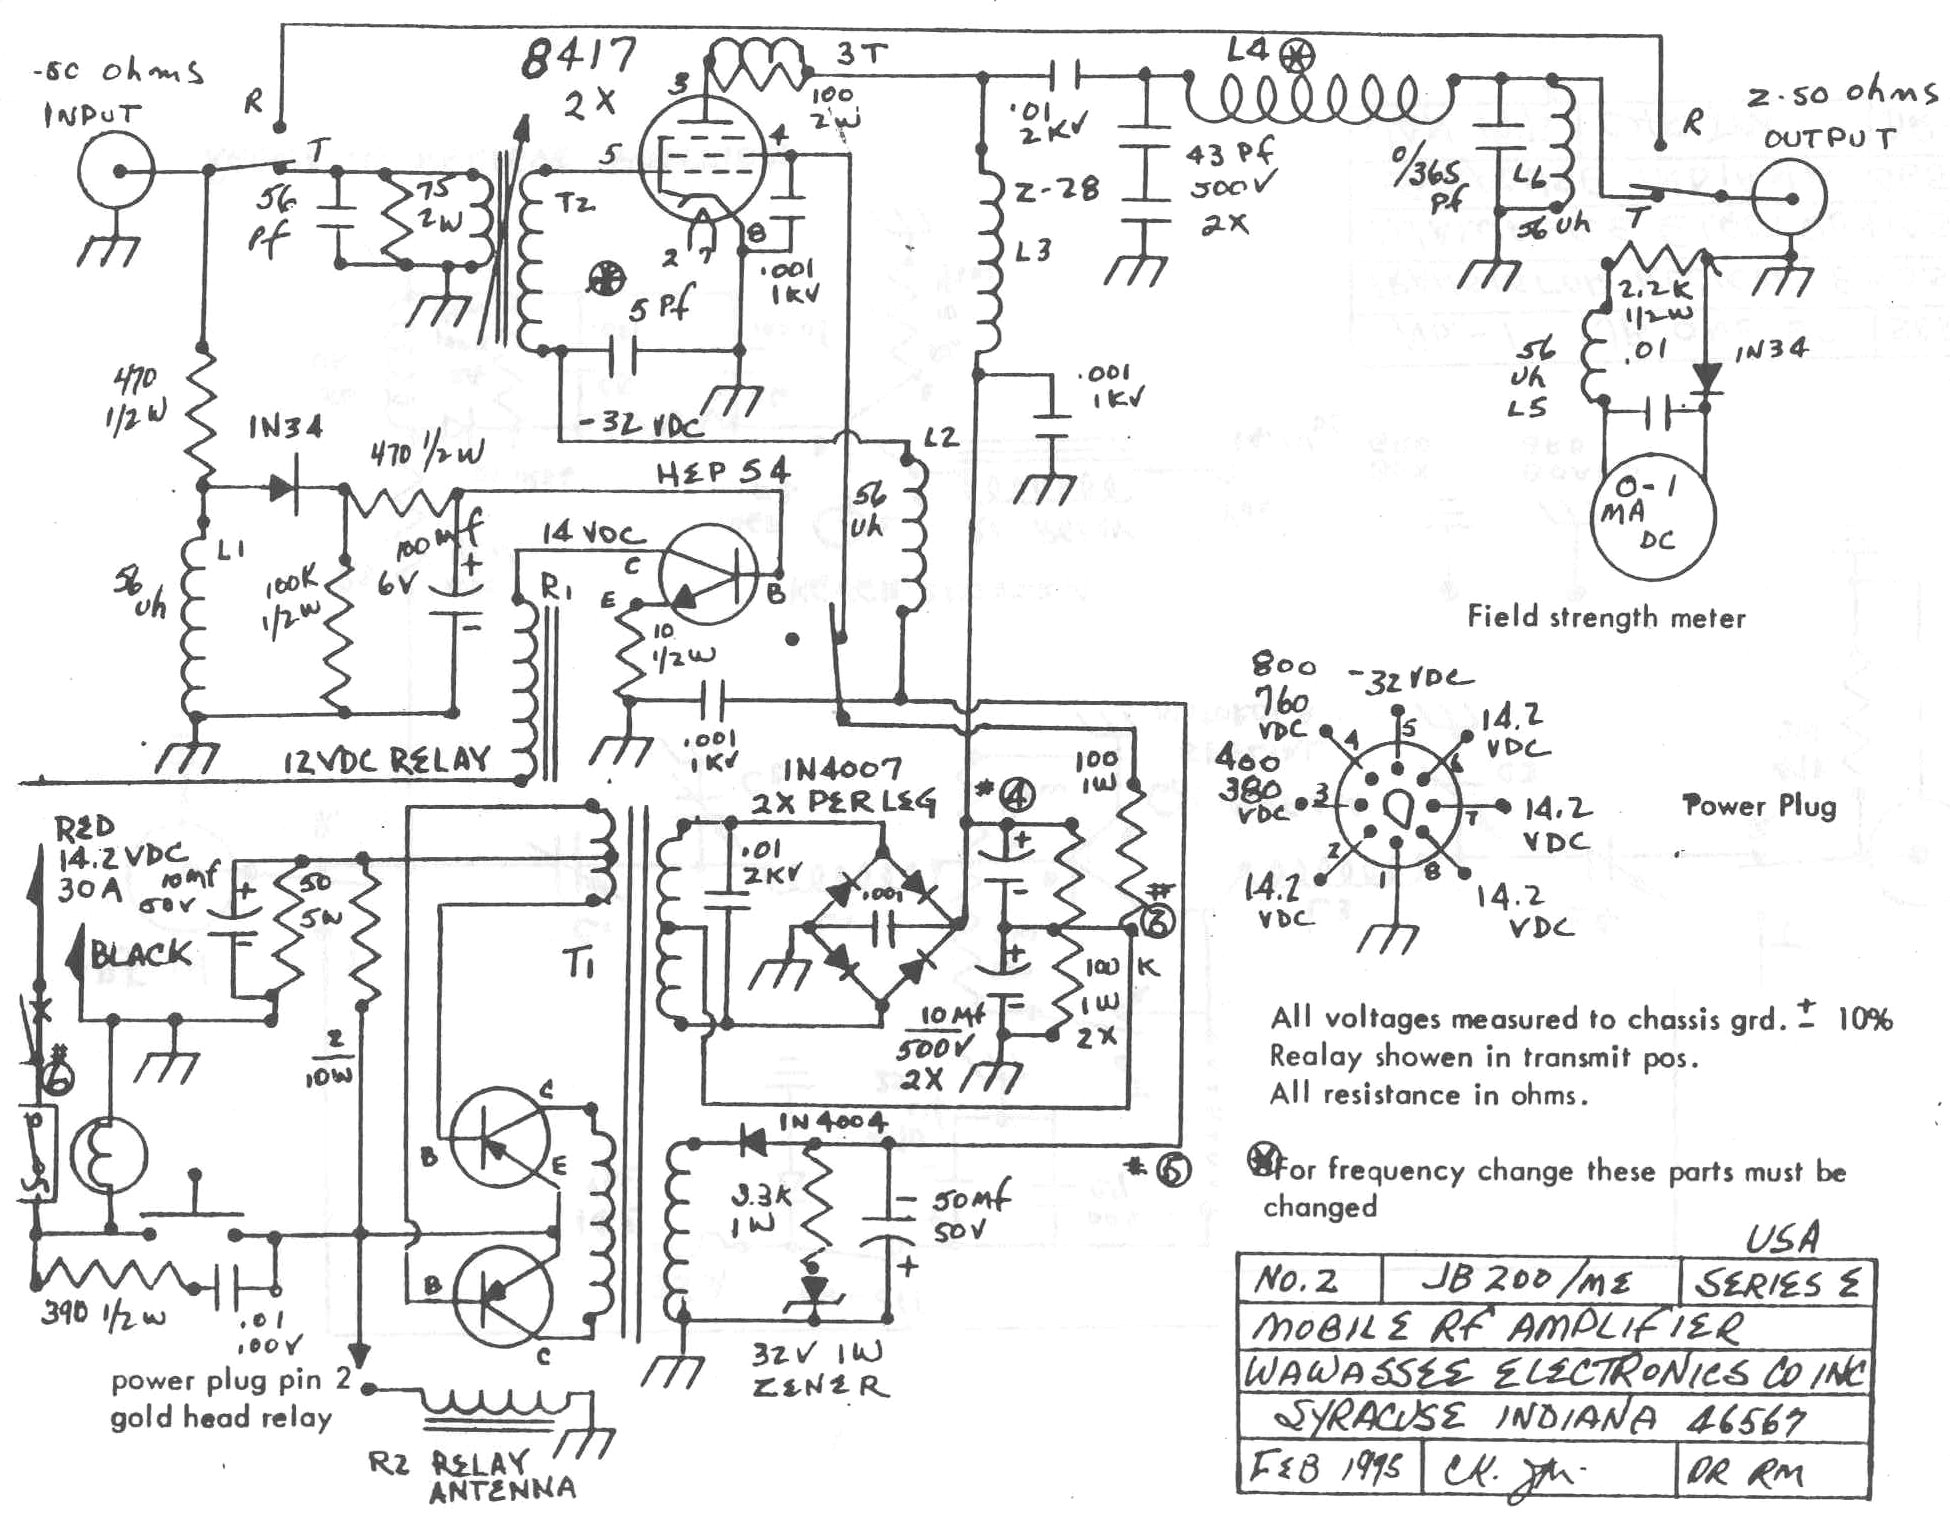 -50 ohms
INPUT
R
T
8417
2X
3
3T
100
2W
4
5
2
7
8
56
Pf
75
2W
T2
5 Pf
.001
1KV
-32 VDC
.01
2KV
Z-28
L3
43 Pf
500V
2X
L4
0/365
Pf
L6
56 uh
R
T
Z-50 ohms
OUTPUT
2.2K
1/2W
.01
1N34
56
uh
L5
0-1
MA
DC
Field strength meter
.001
1KV
470
1/2W
1N34
470 1/2W
HEP 54
L2
56
uh
L1
56
uh
100K
1/2W
100mf
6V
+
-
14 VDC
R1
C
E
B
10
1/2W
.001
1KV
12VDC RELAY
RED
14.2 VDC
30A
BLACK
10mf
50V
+
-
50
5W
2
10W
T1
.01
2KV
1N4007
2X PER LEG
.001
# 4
+
-
+
-
10 Mf
500V
2X
100
1W
#
3
100 K
1W
2X
# 6
B
C
E
B
C
1N4004
# 5
3.3K
1W
-
50Mf
50V
+
32V 1W
ZENER
390 1/2W
.01
.00V
power plug pin 2
gold head relay
R2 RELAY
ANTENNA
800
760
VDC
-32 VDC
14.2
VDC
400
380
VDC
14.2
VDC
14.2
VDC
14.2
VDC
4
5
6
3
7
2
1
8
Power Plug
All voltages measured to chassis grd. ± 10%
Realay showen in transmit pos.
All resistance in ohms.
For frequency change these parts must be
changed
USA
NO.2 JB 200/ME SERIES E
MOBILE RF AMPLIFIER
WAWASSEE ELECTRONICS CO INC
SYRACUSE INDIANA 46567
FEB 1995 CK. DR RM